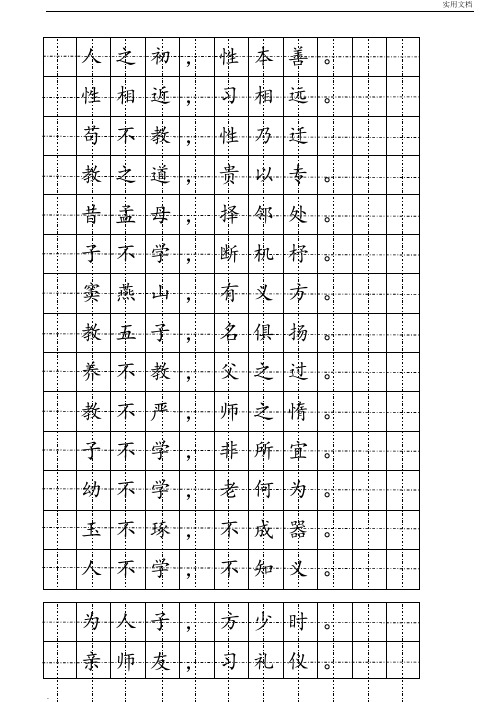 实用文档
人之初，性本善。
性相近，习相远。
苟不教，性乃迁
教之道，贵以专。
昔孟母，择邻处。
子不学，断机杼。
窦燕山，有义方。
教五子，名俱扬。
养不教，父之过。
教不严，师之惰。
子不学，非所宜。
幼不学，老何为。
玉不琢，不成器。
人不学，不知义。
为人子，方少时。
亲师友，习礼仪。